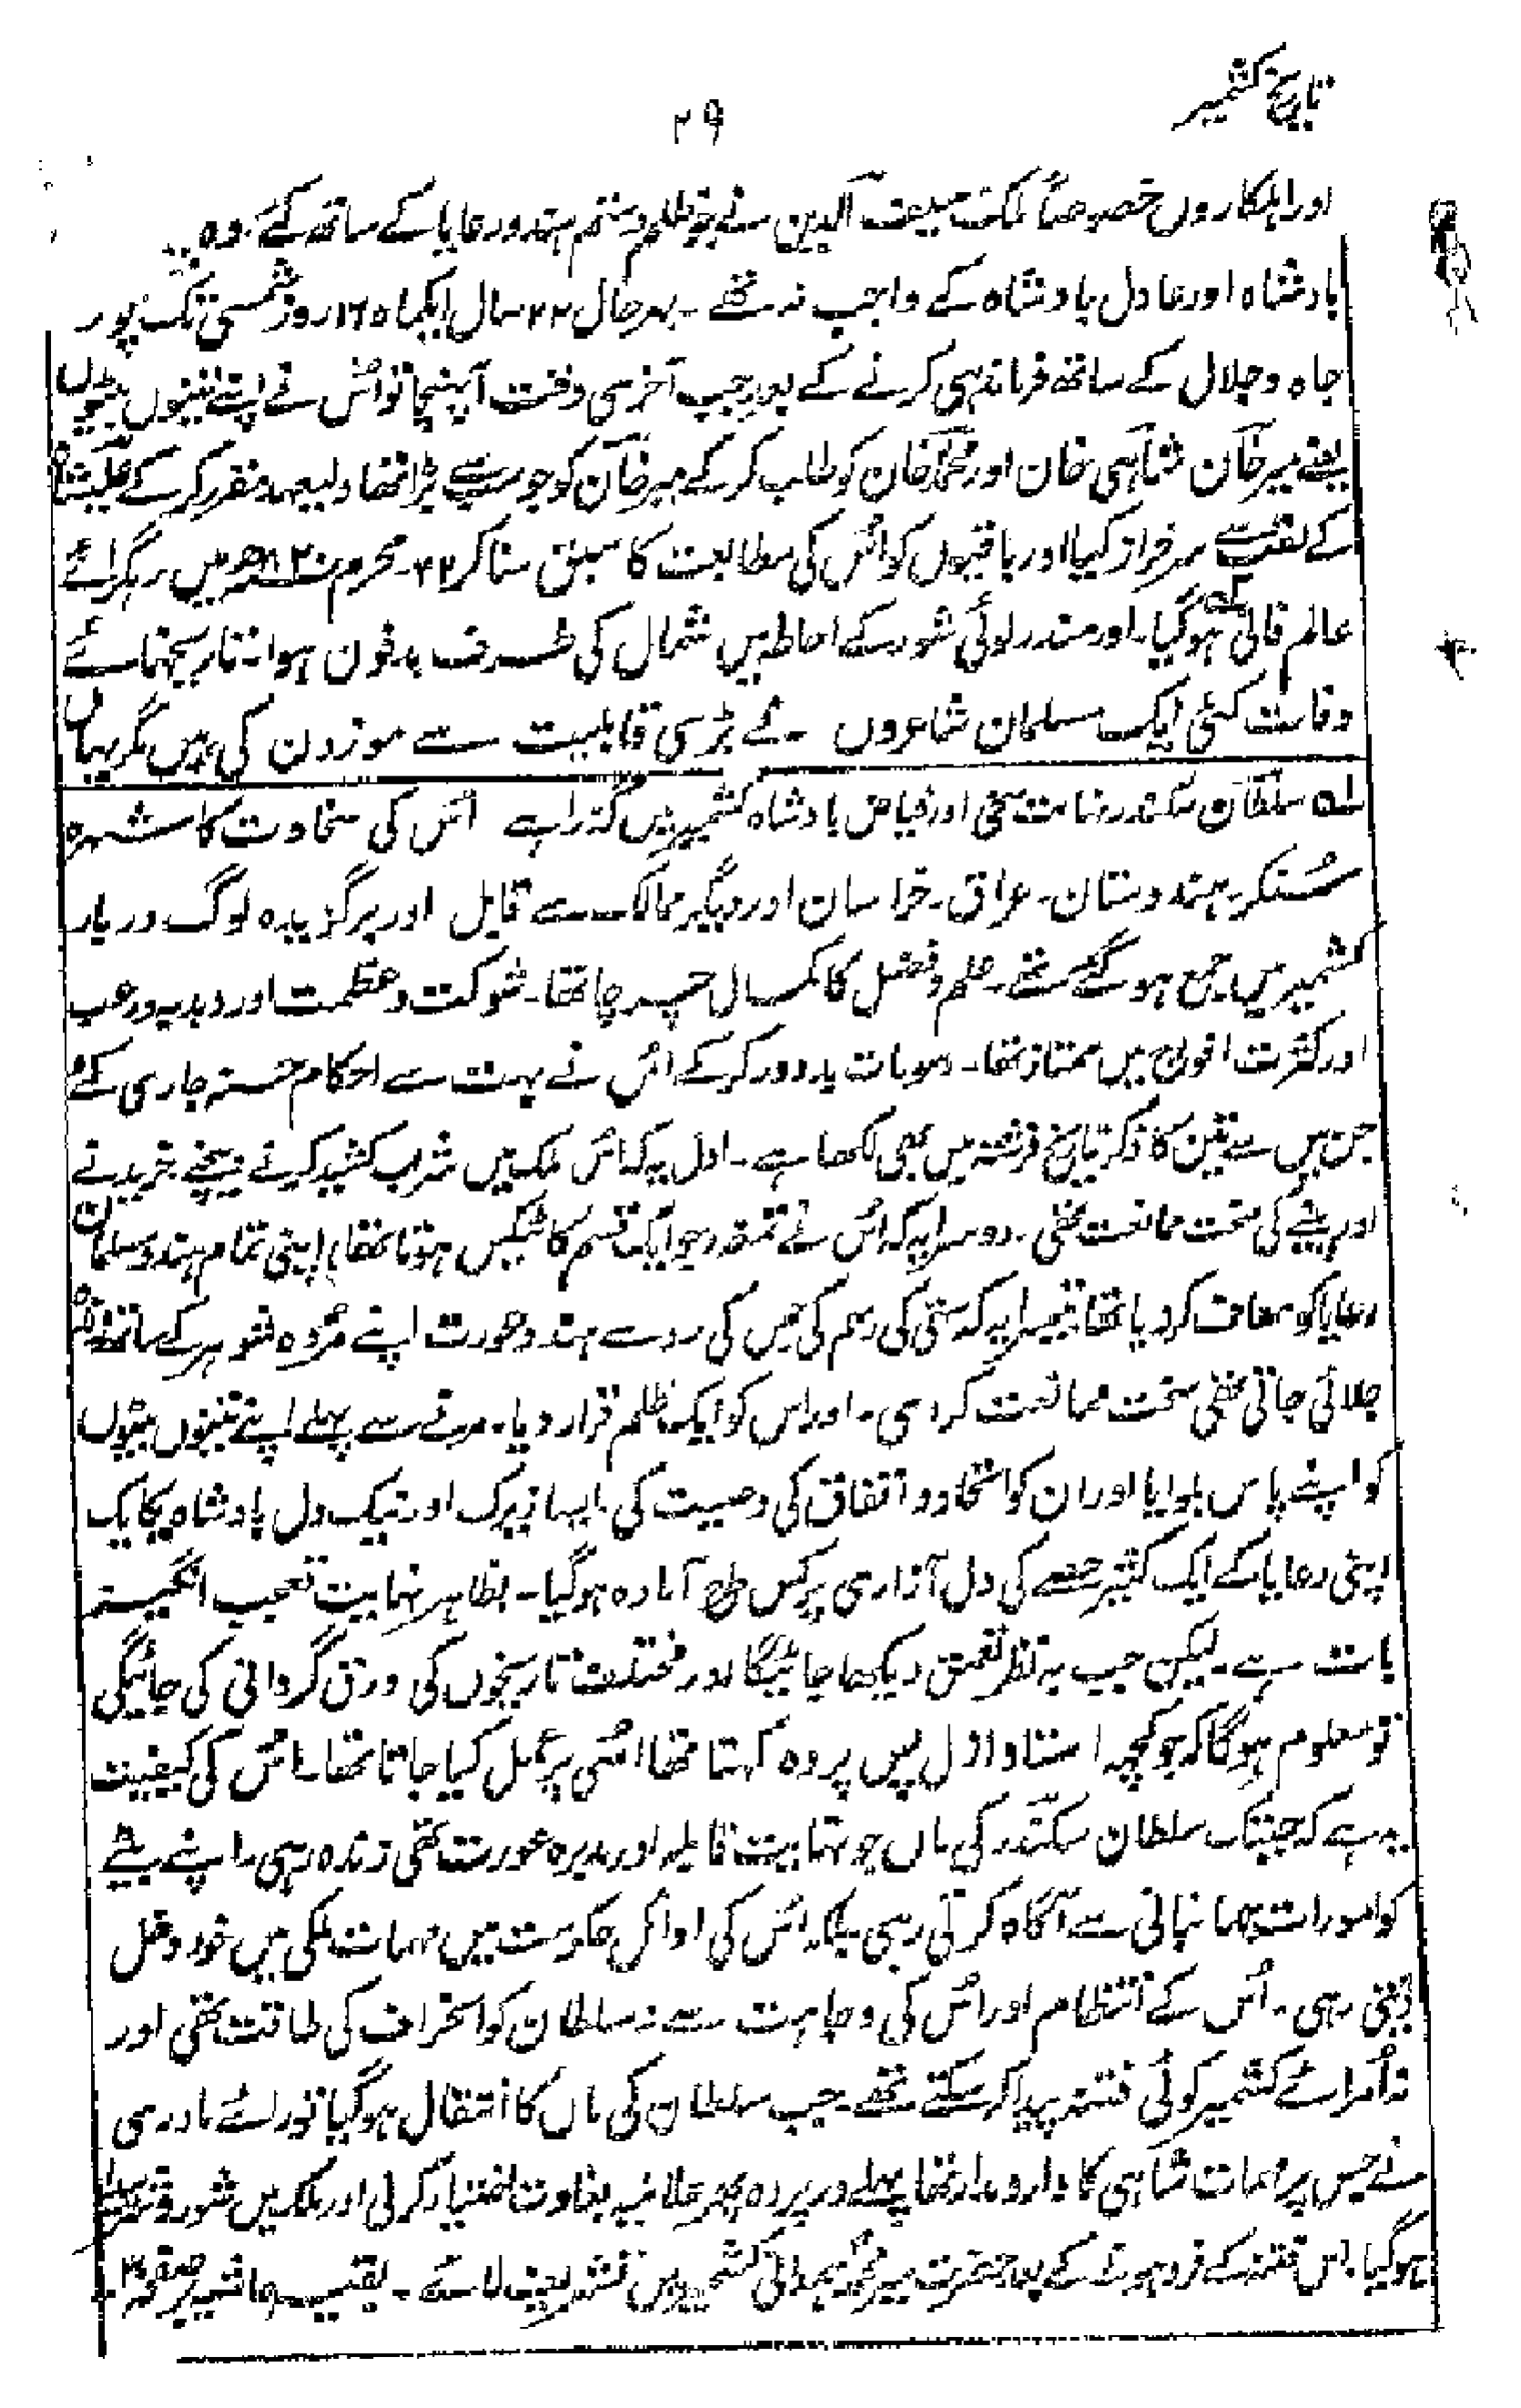 تاریخ کشمیر
۲۹
اور اہلکاروں خصوصاً ملک سیف الدین نے جو ظلم و ستم ہندو رعایا کے ساتھ کئے۔ وہ
بادشاہ اور عادل بادشاہ کے واجب نہ تھے۔ بہر حال ۲۲ سال ایکماہ ۱۶ روز شمسی تک پور
جاہ و جلال کے ساتھ فرماندہی کرنے کے بعد جب آخری وقت آپہنچا تو اُس نے اپنے تینوں بیٹوں
یعنے میر خان شاہی خان اور محمد خان کو طلب کر کے میر خان کو جو سب سے بڑا تھا ولیعہد مقرر کر کے علیشاہ
کے لقب سے سرفراز کیا اور باقیوں کو اُس کی مطابعت کا سبق سنا کر ۲۲۔ محرم ۸۲۰ھ میں رہگرائے
عالم فانی ہوگیا۔ اور مندر لوئی شور کے احاطہ میں شمال کی طرف مدفون ہوا۔ تاریخہائے
وفات کئی ایک مسلمان شاعروں نے بڑی قابلیت سے موزون کی ہیں مگر یہاں
لہ سلطان سکندر نہایت سخی اور فیاض بادشاہ کشمیر میں گذرا ہے اُس کی سخاوت کا شہرہ
سُنکر ہندوستان۔ عراق۔ خراسان اور دیگر ممالک سے قابل اور برگزیدہ لوگ دربار
کشمیر میں جمع ہو گئے تھے۔ علم و فضل کا کمال چرچا تھا۔ شوکت و عظمت اور دبدبہ و رعب
اور کثرت افواج میں ممتاز تھا۔ رسومات بد دور کر کے اُس نے بہت سے احکام حسنہ جاری کئے
جن میں سے تین کا ذکر تاریخ فرشتہ میں بھی لکھا ہے۔ اول یہ کہ اُس ملک میں شراب کشید کرنے بیچنے خریدنے
اور پینے کی سخت ممانعت تھی۔ دوسرا یہ کہ اُس نے تمغہ (جو ایک قسم کا ٹیکس ہوتا تھا) اپنی تمام ہندو مسلمان
رعایا کو معاف کر دیا تھا تیسرا یہ کہ ستی کی رسم کی جس کی رو سے ہندو عورت اپنے مُردہ شوہر کے ساتھ زندہ
جلائی جاتی تھی سخت ممانعت کر دی۔ اور اس کو ایک ظلم قرار دیا۔ مرنے سے پہلے اپنے تینوں بیٹوں
کو اپنے پاس بلوایا اور ان کو اتحاد و اتفاق کی وصیت کی۔ ایسا زیرک اور نیک دل بادشاہ یکایک
اپنی رعایا کے ایک کثیر حصے کی دل آزاری پر کس طرح آمادہ ہوگیا۔ بظاہر نہایت تعجب انگیز
بات ہے۔ لیکن جب بہ نظر تعمق دیکھا جائیگا اور مختلف تاریخوں کی ورق گردانی کی جائیگی
تو معلوم ہوگا کہ جو کچھ استاد ازل پس پردہ کہتا تھا اُسی پر عمل کیا جاتا تھا۔ اُس کی کیفیت
یہ ہے کہ جبتک سلطان سکندر کی ماں جو نہایت قابلہ اور مدبرہ عورت تھی زندہ رہی۔ اپنے بیٹے
کو امورات جہانبانی سے آگاہ کرتی رہی بلکہ اُس کی اوائل حکومت میں مہمات ملکی میں خود دخل
دیتی رہی۔ اُس کے انتظام اور اُس کی وجاہت سے نہ سلطان کو انحراف کی طاقت تھی اور
نہ اُمرائے کشمیر کوئی فتنہ پیدا کر سکتے تھے۔ جب سلطان کی ماں کا انتقال ہوگیا تو رائے مادری
نے جس پر مہمات شاہی کا دارو مدار تھا پہلے در پردہ پھر علانیہ بغاوت اختیار کرلی اور ملک میں شور و فتنہ پیدا
ہوگیا۔ اس فتنہ کے فرو ہونے کے بعد حضرت میر محمد ہمدانی کشمیر میں تشریف لائے۔ بقیہ حاشیہ بر صفحہ ۳۰